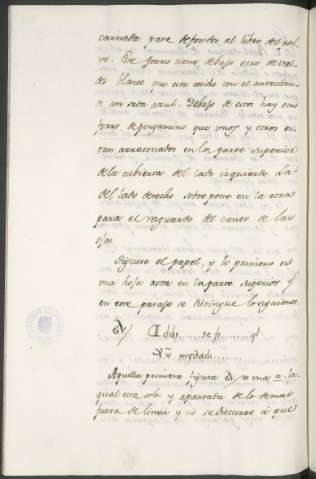 carnada, para defender al libro del pol-
vo. Este forro tiene debajo otro de val-
dés blanco que esta unido con el antecèden-
te con seda azul. Debajo de estos hay otro
forro de pergamino que unos y otros es-
tan arraconados en la parte superior
de la cubierta del lado izquierdo. La
del lado derecho sobre pone en la otra
para el resguardo del canto de las
ojas.
Siguese el papel, y lo primero es
una hoja rota en la parte superior q.
en este parage se distingue lo siguiente.
dibj........se fi.........ql
mrdadi.........
Aquella primera figura es una a. la
qual esta sola y apartada de lo demas
fuera de linea y no se discurre á que